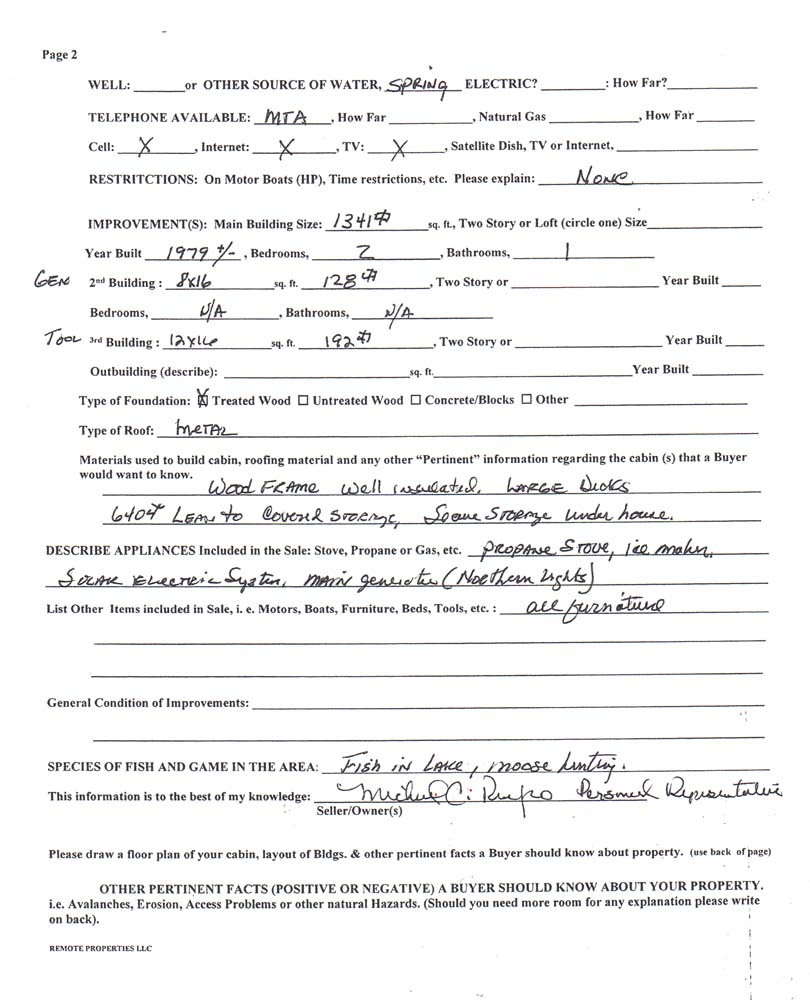 Page 2
WELL: _______or OTHER SOURCE OF WATER, SPRING ELECTRIC? _________: How Far?____________
TELEPHONE AVAILABLE: MTA, How Far ____________, Natural Gas ____________, How Far ________
Cell: X, Internet: X, TV: X, Satellite Dish, TV or Internet, ____________
RESTRITCTIONS: On Motor Boats (HP), Time restrictions, etc. Please explain: NONE
IMPROVEMENT(S): Main Building Size: 1341 sq. ft., Two Story or Loft (circle one) Size____________
Year Built 1979 +/-, Bedrooms, 2, Bathrooms, 1
GEN 2nd Building : 8x16 sq. ft. 128, Two Story or ____________ Year Built _____
Bedrooms, N/A, Bathrooms, N/A
TOOL 3rd Building : 12x16 sq. ft. 192, Two Story or ____________ Year Built _____
Outbuilding (describe): ____________sq. ft.____________Year Built ________
Type of Foundation: ☒ Treated Wood ☐ Untreated Wood ☐ Concrete/Blocks ☐ Other ____________
Type of Roof: METAL
Materials used to build cabin, roofing material and any other “Pertinent” information regarding the cabin (s) that a Buyer
would want to know.
Wood FRAME Well insulated, LARGE Decks
640 LEAN to Covered STORAGE, Some STORAGE under house.
DESCRIBE APPLIANCES Included in the Sale: Stove, Propane or Gas, etc. PROPANE STOVE, ice maker,
SOLAR ELECTRIC System, MAIN generator (Northern Lights)
List Other Items included in Sale, i. e. Motors, Boats, Furniture, Beds, Tools, etc. : all furniture
General Condition of Improvements: ____________
SPECIES OF FISH AND GAME IN THE AREA: Fish in LAKE, moose hunting.
This information is to the best of my knowledge: Michael C. Personal Representative
Seller/Owner(s)
Please draw a floor plan of your cabin, layout of Bldgs. & other pertinent facts a Buyer should know about property. (use back of page)
OTHER PERTINENT FACTS (POSITIVE OR NEGATIVE) A BUYER SHOULD KNOW ABOUT YOUR PROPERTY.
i.e. Avalanches, Erosion, Access Problems or other natural Hazards. (Should you need more room for any explanation please write
on back).
REMOTE PROPERTIES LLC